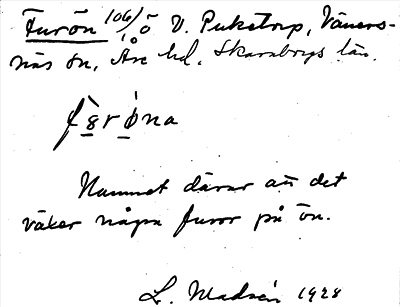 Furön 106/ö V. Puketorp, Väners-
näs sn, Åse hd. Skaraborgs län.
fɛ̀rǿna
Namnet därav att det
växer några furor på ön.
L. Madsén 1928